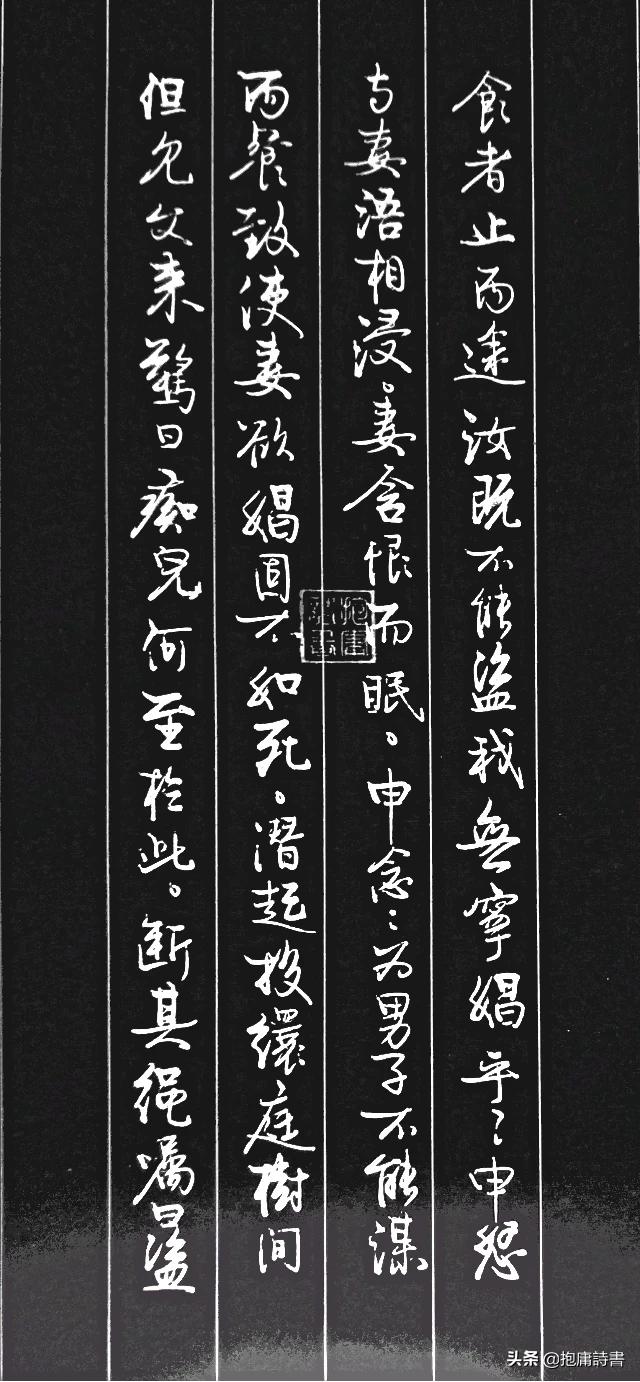 食者止两途汝既不能盗我無寧娼乎：申怒
与妻语相浸。妻含恨而眠。申念：为男子不能谋
两餐致使妻欲娼固不如死。潛起投繯庭樹间
但見父来驚曰痴兒何至於此。断其绳嘱曰盗
头条 @抱庸詩書